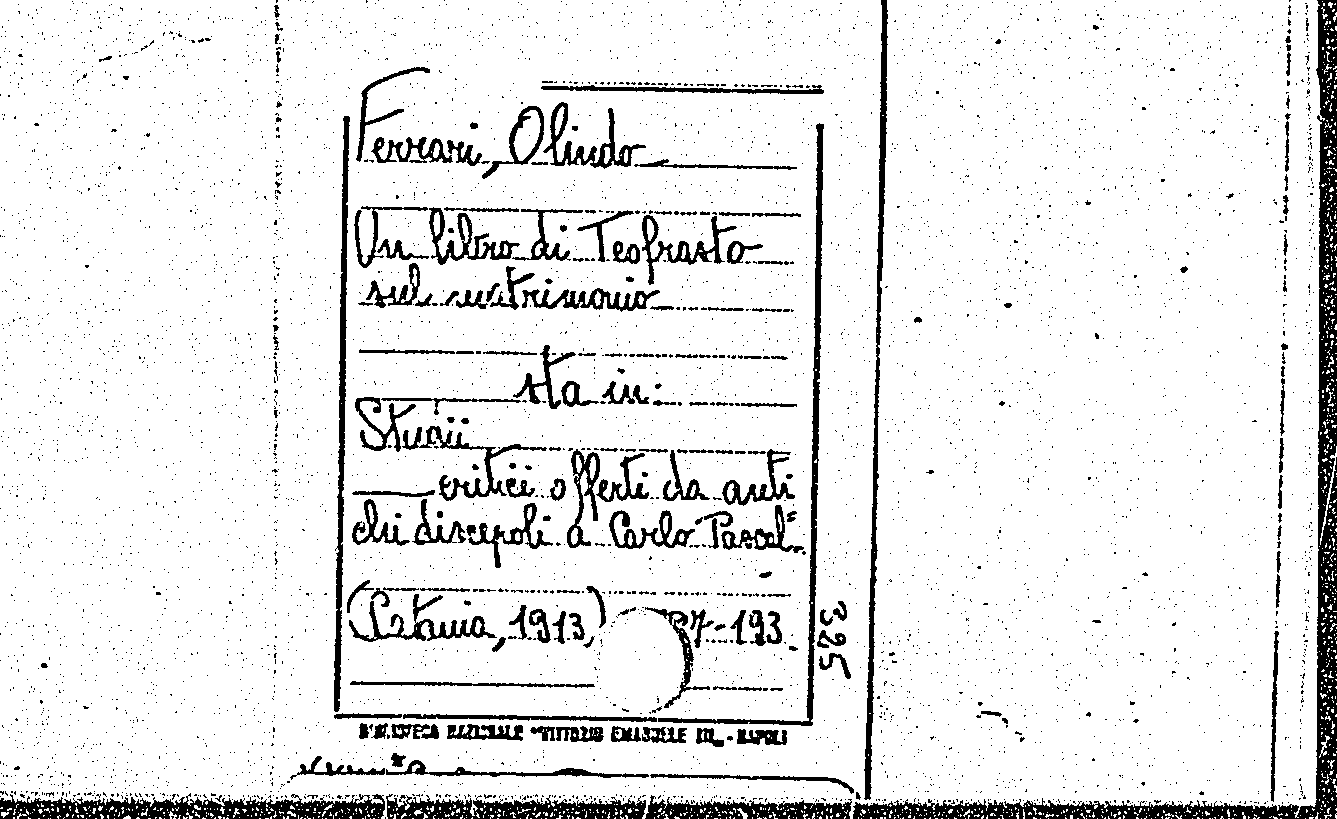 Ferrari, Olindo
Un libro di Teofrasto
sul matrimonio
sta in:
Studii
critici offerti da anti
chi discepoli a Carlo Pascal
(Catania, 1913) 7-193
3295
BIBLIOTECA NAZIONALE "VITTORIO EMANUELE III" - NAPOLI